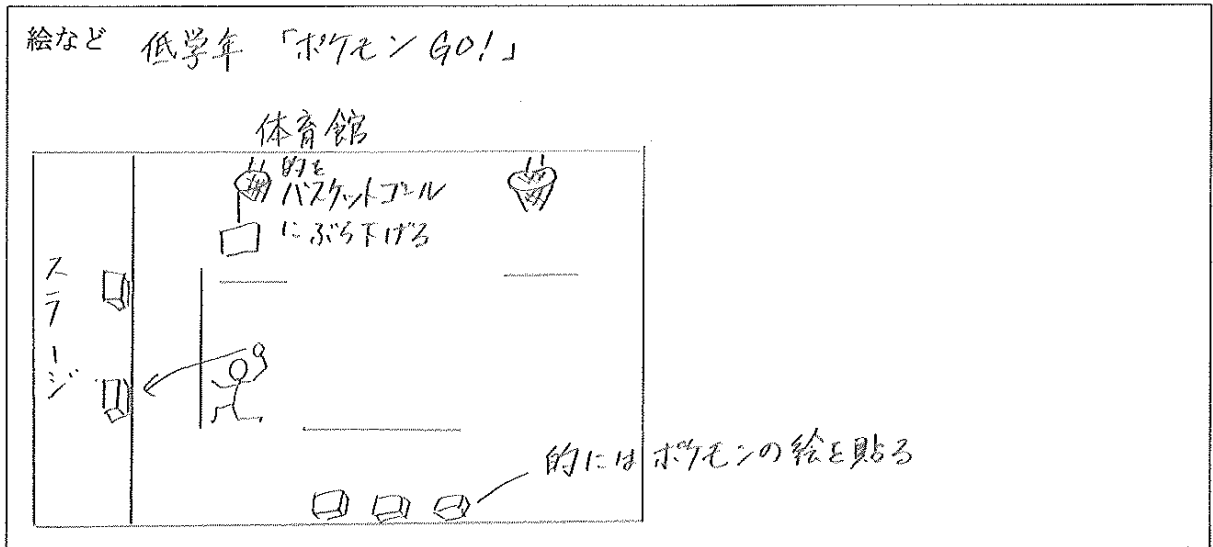 絵など 低学年 「ポケモンGO!」
体育館
的を
バスケットゴール
にぶら下げる
ステージ
的にはポケモンの絵を貼る